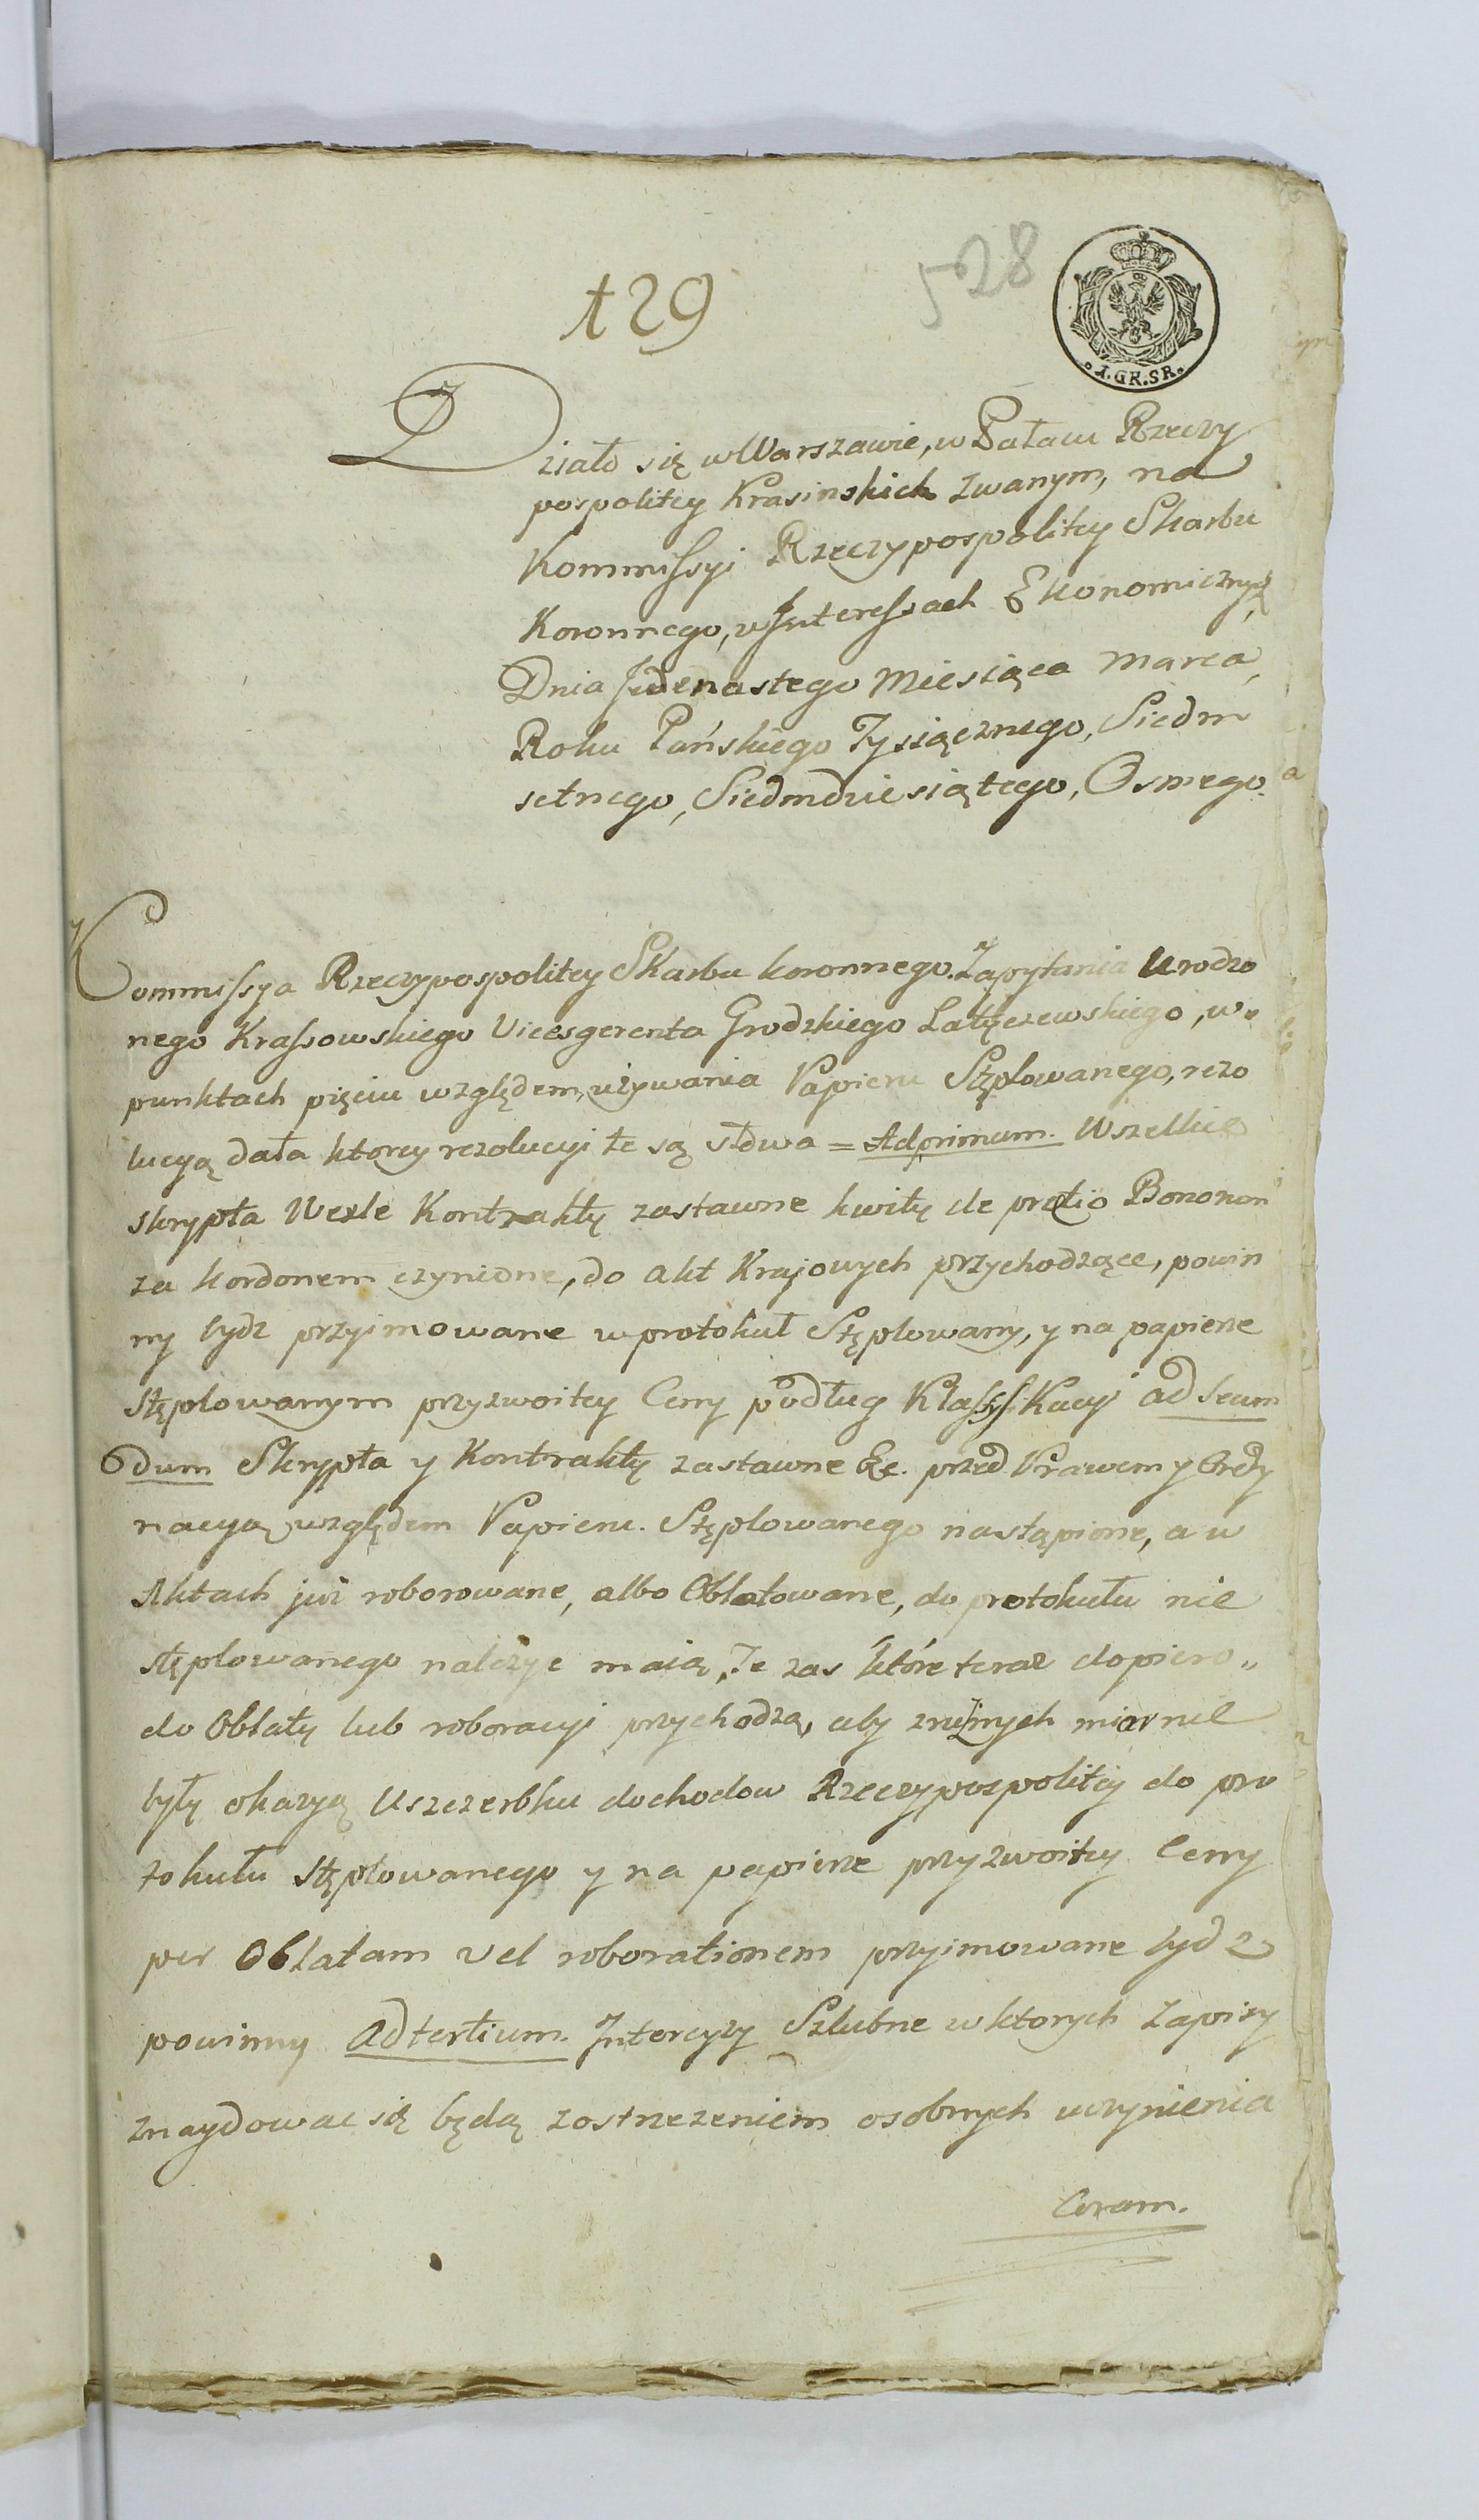 528
129
1.GR.SR.
Działo się w Warszawie, w Pałacu Rzeczy
pospolitey Krasinskich zwanym, na
Kommissyi Rzeczypospolitey Skarbu
Koronnego, w Interessach Ekonomicznych
Dnia Jedenastego Miesiąca Marca,
Roku Pańskiego Tysiącznego, Siedm
setnego, Siedmdziesiątego, Osmego.
Commissya Rzeczypospolitey Skarbu koronnego. Zapytania Urodzo
nego Krassowskiego Vicesgerenta Grodzkiego Latyczewskiego, w
punktach pięciu względem używania Papieru Stęplowanego, rezo
lucyą dała ktorey rezolucyi te są słowa = Ad primum. Wszelkie
skrypta Wexle Kontrakty zastawne kwity de pretio Bonorum
za kordonem czynione, do Akt Krajowych przychodzące, powin
ny bydz przyimowane w protokuł Stęplowany, y na papierze
stęplowanym przyzwoitey Ceny podług Klassyfikacyi ad secun
dum Skrypta y Kontrakty zastawne &c. przed Prawem y Ordy
nacyą względem Papieru Stęplowanego nastąpione, a w
Aktach już roborowane, albo Oblatowane, do protokułu nie
stęplowanego należyc maią, Te zas które teraz dopiero„
do Oblaty lub roboracyi przychodzą, aby z rużnych miar nie
były okazyą Uszczerbku dochodow Rzeczypospolitey do pro
tokułu stęplowanego y na papierze przyzwoitey Ceny
per Oblatam vel roborationem przyimowane bydz
powinny ad tertium. Intercyzy Szlubne w ktorych zapisy
znaydowac się będą zostrzezeniem osobnych uczynienia
Coram.